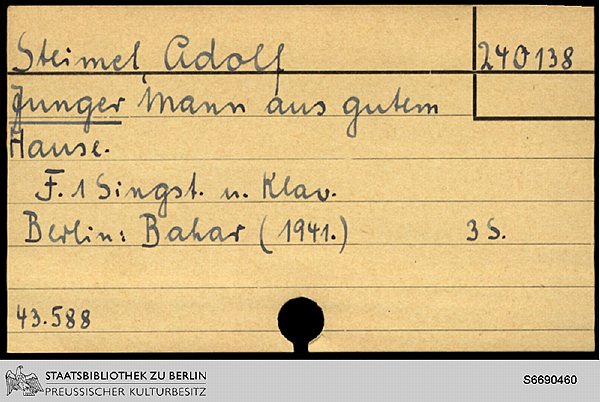 Steimel, Adolf
240138
Junger Mann aus gutem
Hause.
F. 1 Singst. u. Klav.
Berlin: Bahar (1941.) 3 S.
43.588
STAATSBIBLIOTHEK ZU BERLIN
PREUSSISCHER KULTURBESITZ
S6690460